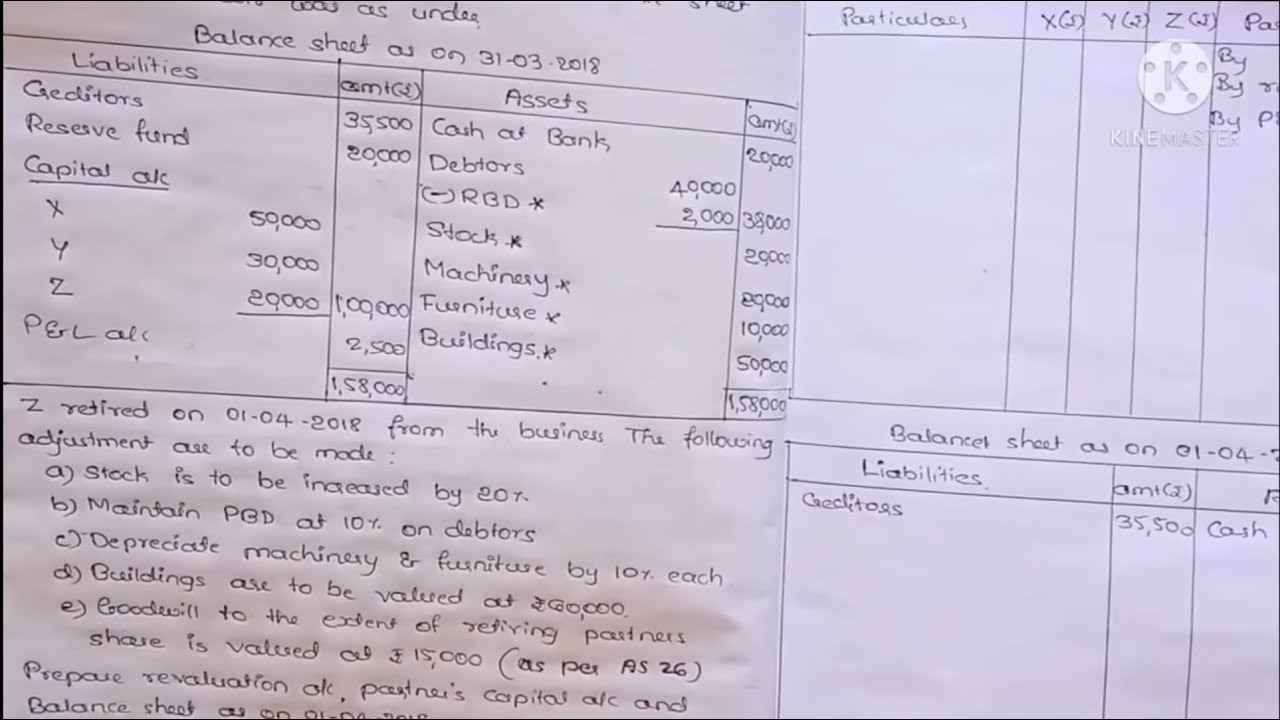 was as under
sheet
Balance sheet as on 31-03-2018
Liabilities amt(₹) Assets amt(₹)
Creditors 35,500 Cash at Bank 20,000
Reserve fund 20,000 Debtors 40,000
Capital a/c (-) RBD * 2,000 38,000
X 50,000 Stock * 20,000
Y 30,000 Machinery * 20,000
Z 20,000 1,00,000 Furniture * 10,000
P&L a/c 2,500 Buildings * 50,000
1,58,000 1,58,000
Z retired on 01-04-2018 from the business The following
adjustment are to be made :
a) Stock is to be increased by 20%.
b) Maintain PBD at 10% on debtors
c) Depreciate machinery & furniture by 10% each
d) Buildings are to be valued at ₹60,000.
e) Goodwill to the extent of retiring partners
share is valued at ₹ 15,000 (as per AS 26)
Prepare revaluation a/c, partner's capital a/c and
Balance sheet as on 01-04-2018
Particulars X(₹) Y(₹) Z(₹)
By
By
By
KINEMASTER
Balancet sheet as on 01-04-
Liabilities amt(₹)
Creditors 35,500 Cash